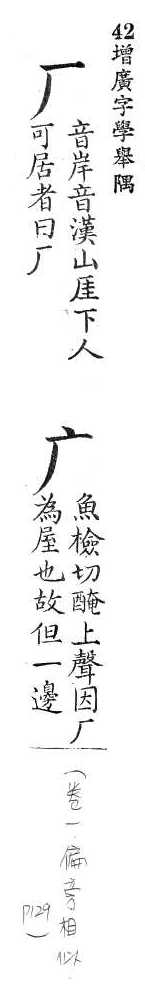 42增廣字學舉隅
厂
音岸音漢山厓下人
可居者曰厂
广
魚檢切醃上聲因厂
為屋也故但一邊
(卷一偏旁相似
P129)